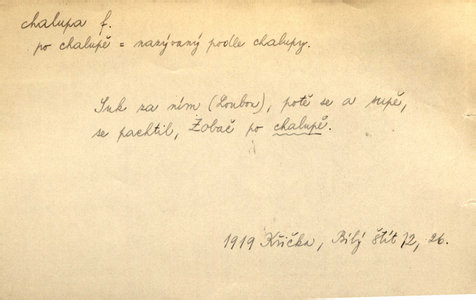 chalupa f.
po chalupě = nazývaný podle chalupy.
Suk za ním (Loubou), potě se a supě,
se pachtil, Žobač po chalupě.
1919 Křička, Bílý štít 72, 26.